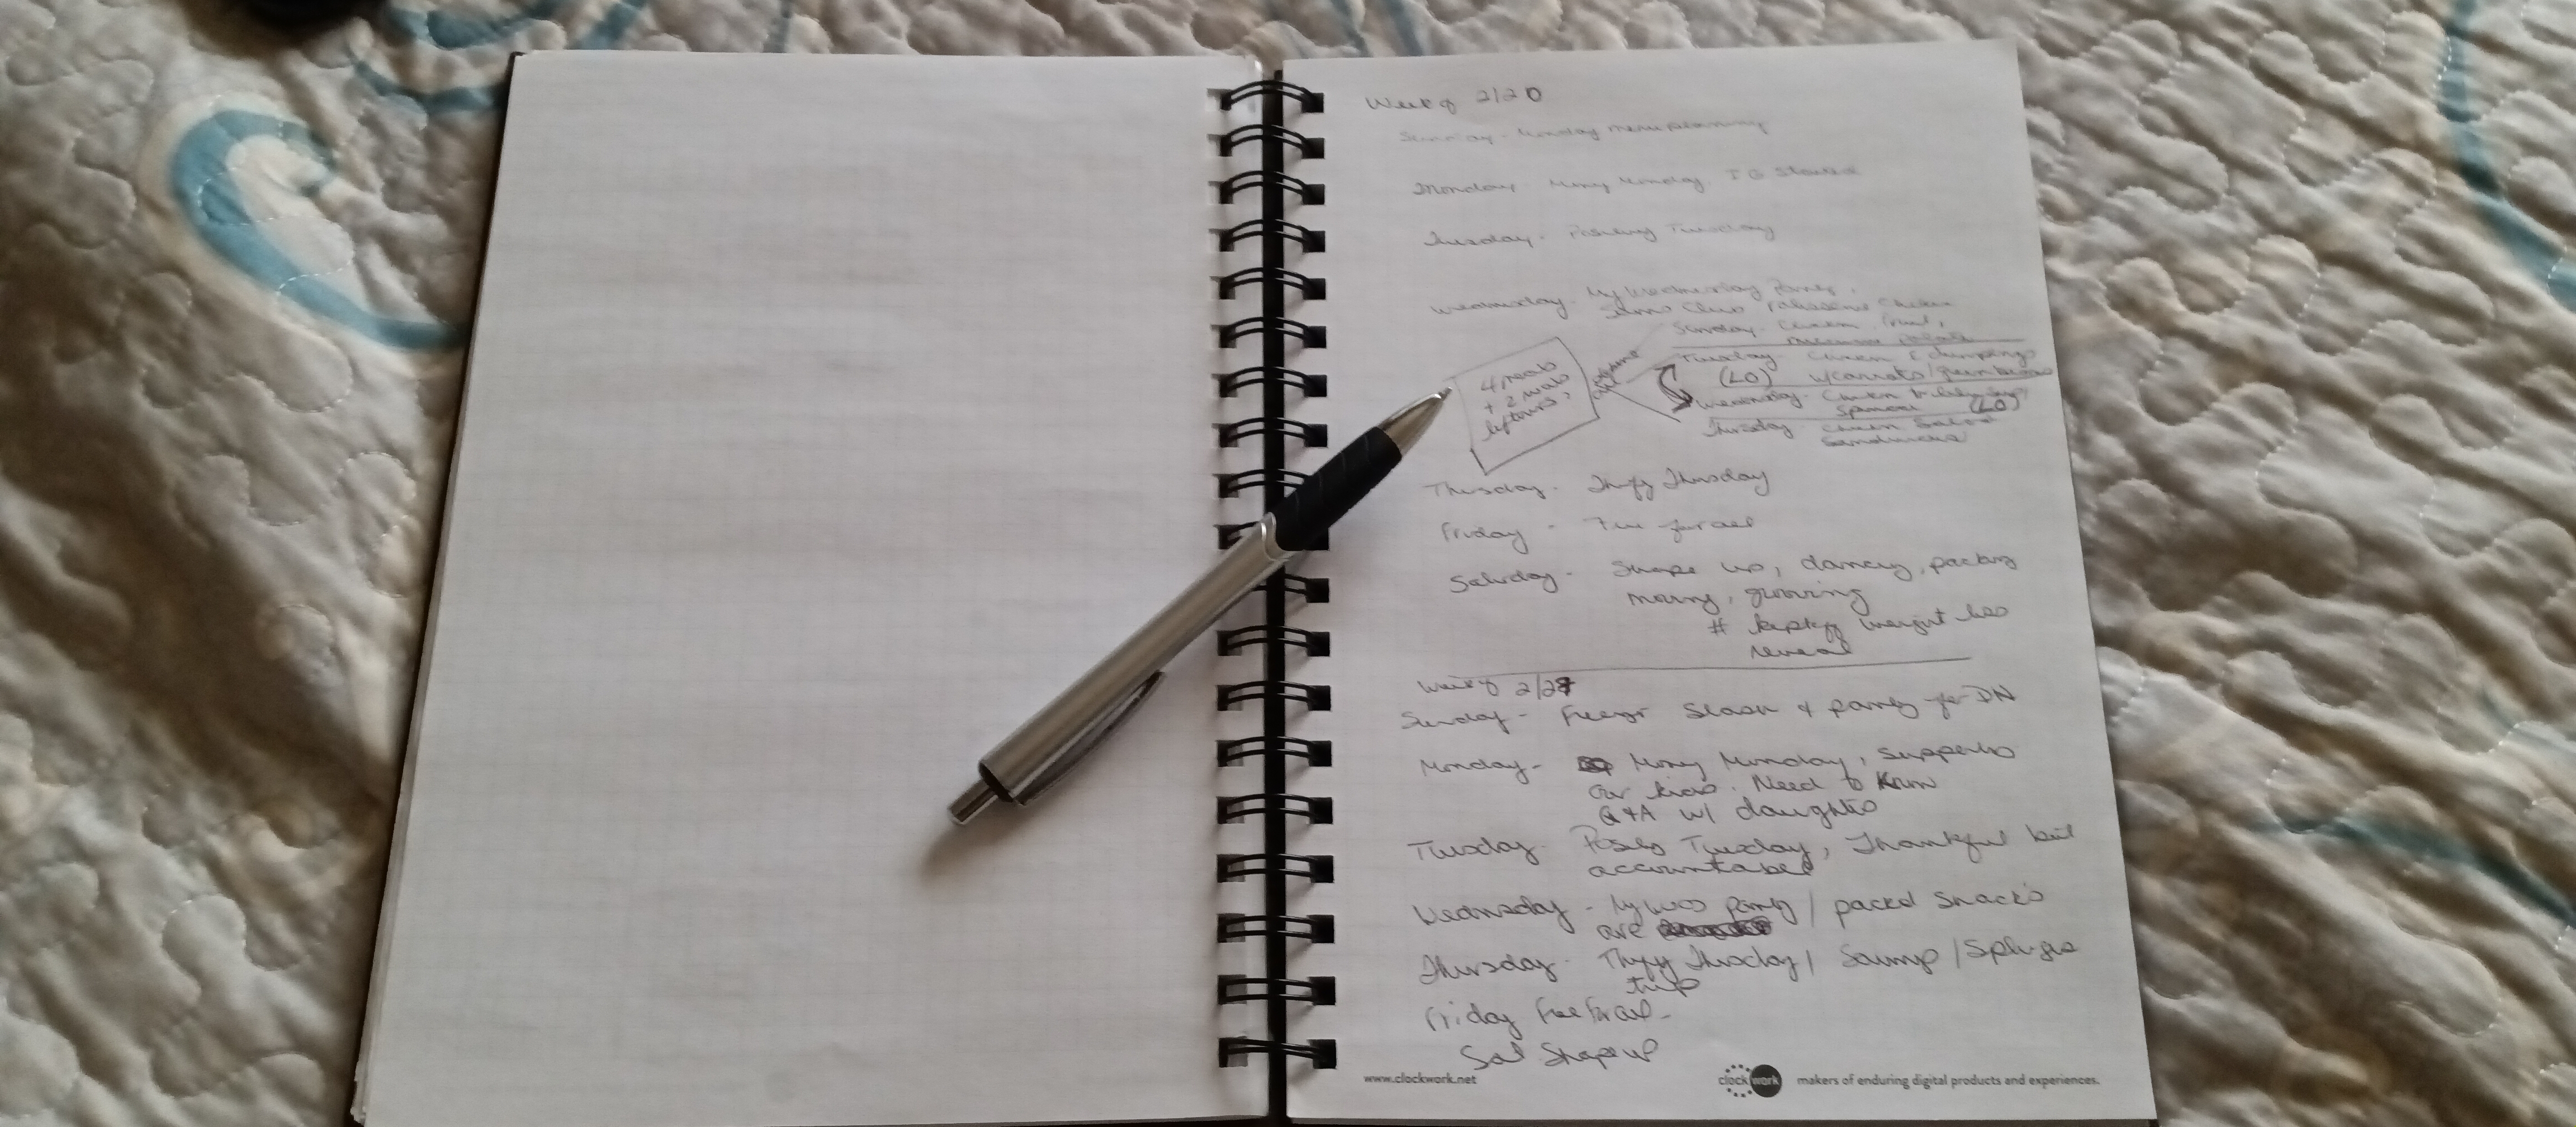 Week of 2/20
Sunday - Sunday menu planning
Monday - Money Monday, IG Started
Tuesday - Positivity Tuesday
Wednesday - My Wednesday Pantry,
Sams Club Rotisserie Chicken
Sunday - Chicken, fruit,
potato
Tuesday - Chicken & dumplings
(LO) w/carrots/green beans
Wednesday - Chicken
(LO)
Thursday chicken salad
Sandwiches
4 meals
+ 2 w/
leftovers?
Thursday - Thrifty Thursday
Friday - Free for all
Saturday - Shape up, dancing, packing
moving, grooving
# weight loss
reveal
Week of 2/27
Sunday - Freezer Stash & pantry for DN
Monday - Money Monday,
our kids. Need to Know
Q&A w/ daughter
Tuesday - Tuesday, Thankful but
accountable
Wednesday - My Weds pantry / packed snacks
are
Thursday - Thrifty Thursday / Scrimp / Splurge
trip
Friday Free for all -
Sat Shape up
www.clockwork.net
clockwork
makers of enduring digital products and experiences.